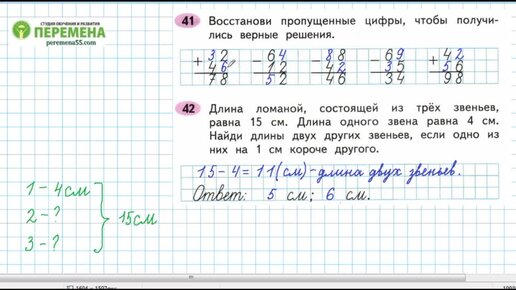 СТУДИЯ ОБУЧЕНИЯ И РАЗВИТИЯ
ПЕРЕМЕНА
peremena55.com
41 Восстанови пропущенные цифры, чтобы получи-
лись верные решения.
+ 32 - 64 - 88 - 69 + 42
46 12 42 35 56
78 52 46 34 98
42 Длина ломаной, состоящей из трёх звеньев,
равна 15 см. Длина одного звена равна 4 см.
Найди длины двух других звеньев, если одно из
них на 1 см короче другого.
15-4=11(см)-длина двух звеньев.
Ответ: 5 см; 6 см.
1-4см
2-?
3-?
15см